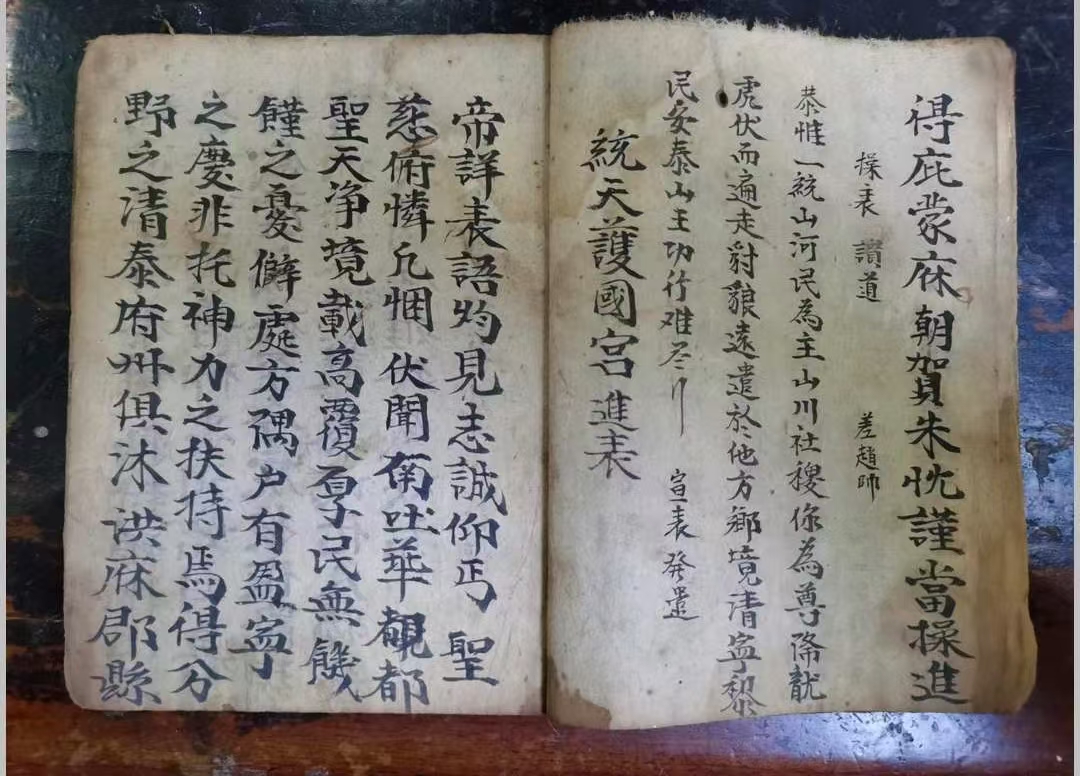 得庇蒙庥朝賀朱忱謹當操進
操表 讚道 差趙帥
恭惟一統山河民為主山川社稷你為尊降龍
虎伏而遍走豺狼遠遣於他方鄉境清寧黎
民安泰山王功行难尽 宣表發遣
統天護國宮進表
帝詳表語灼見志誠仰丐 聖
慈俯憐凡悃 伏聞南吐華 覩都
聖天净境載高覆厚民無饑
饉之憂僻處方隅户有盈寧
之慶非托神力之扶持焉得分
野之清泰府州俱沐 洪庥郡縣